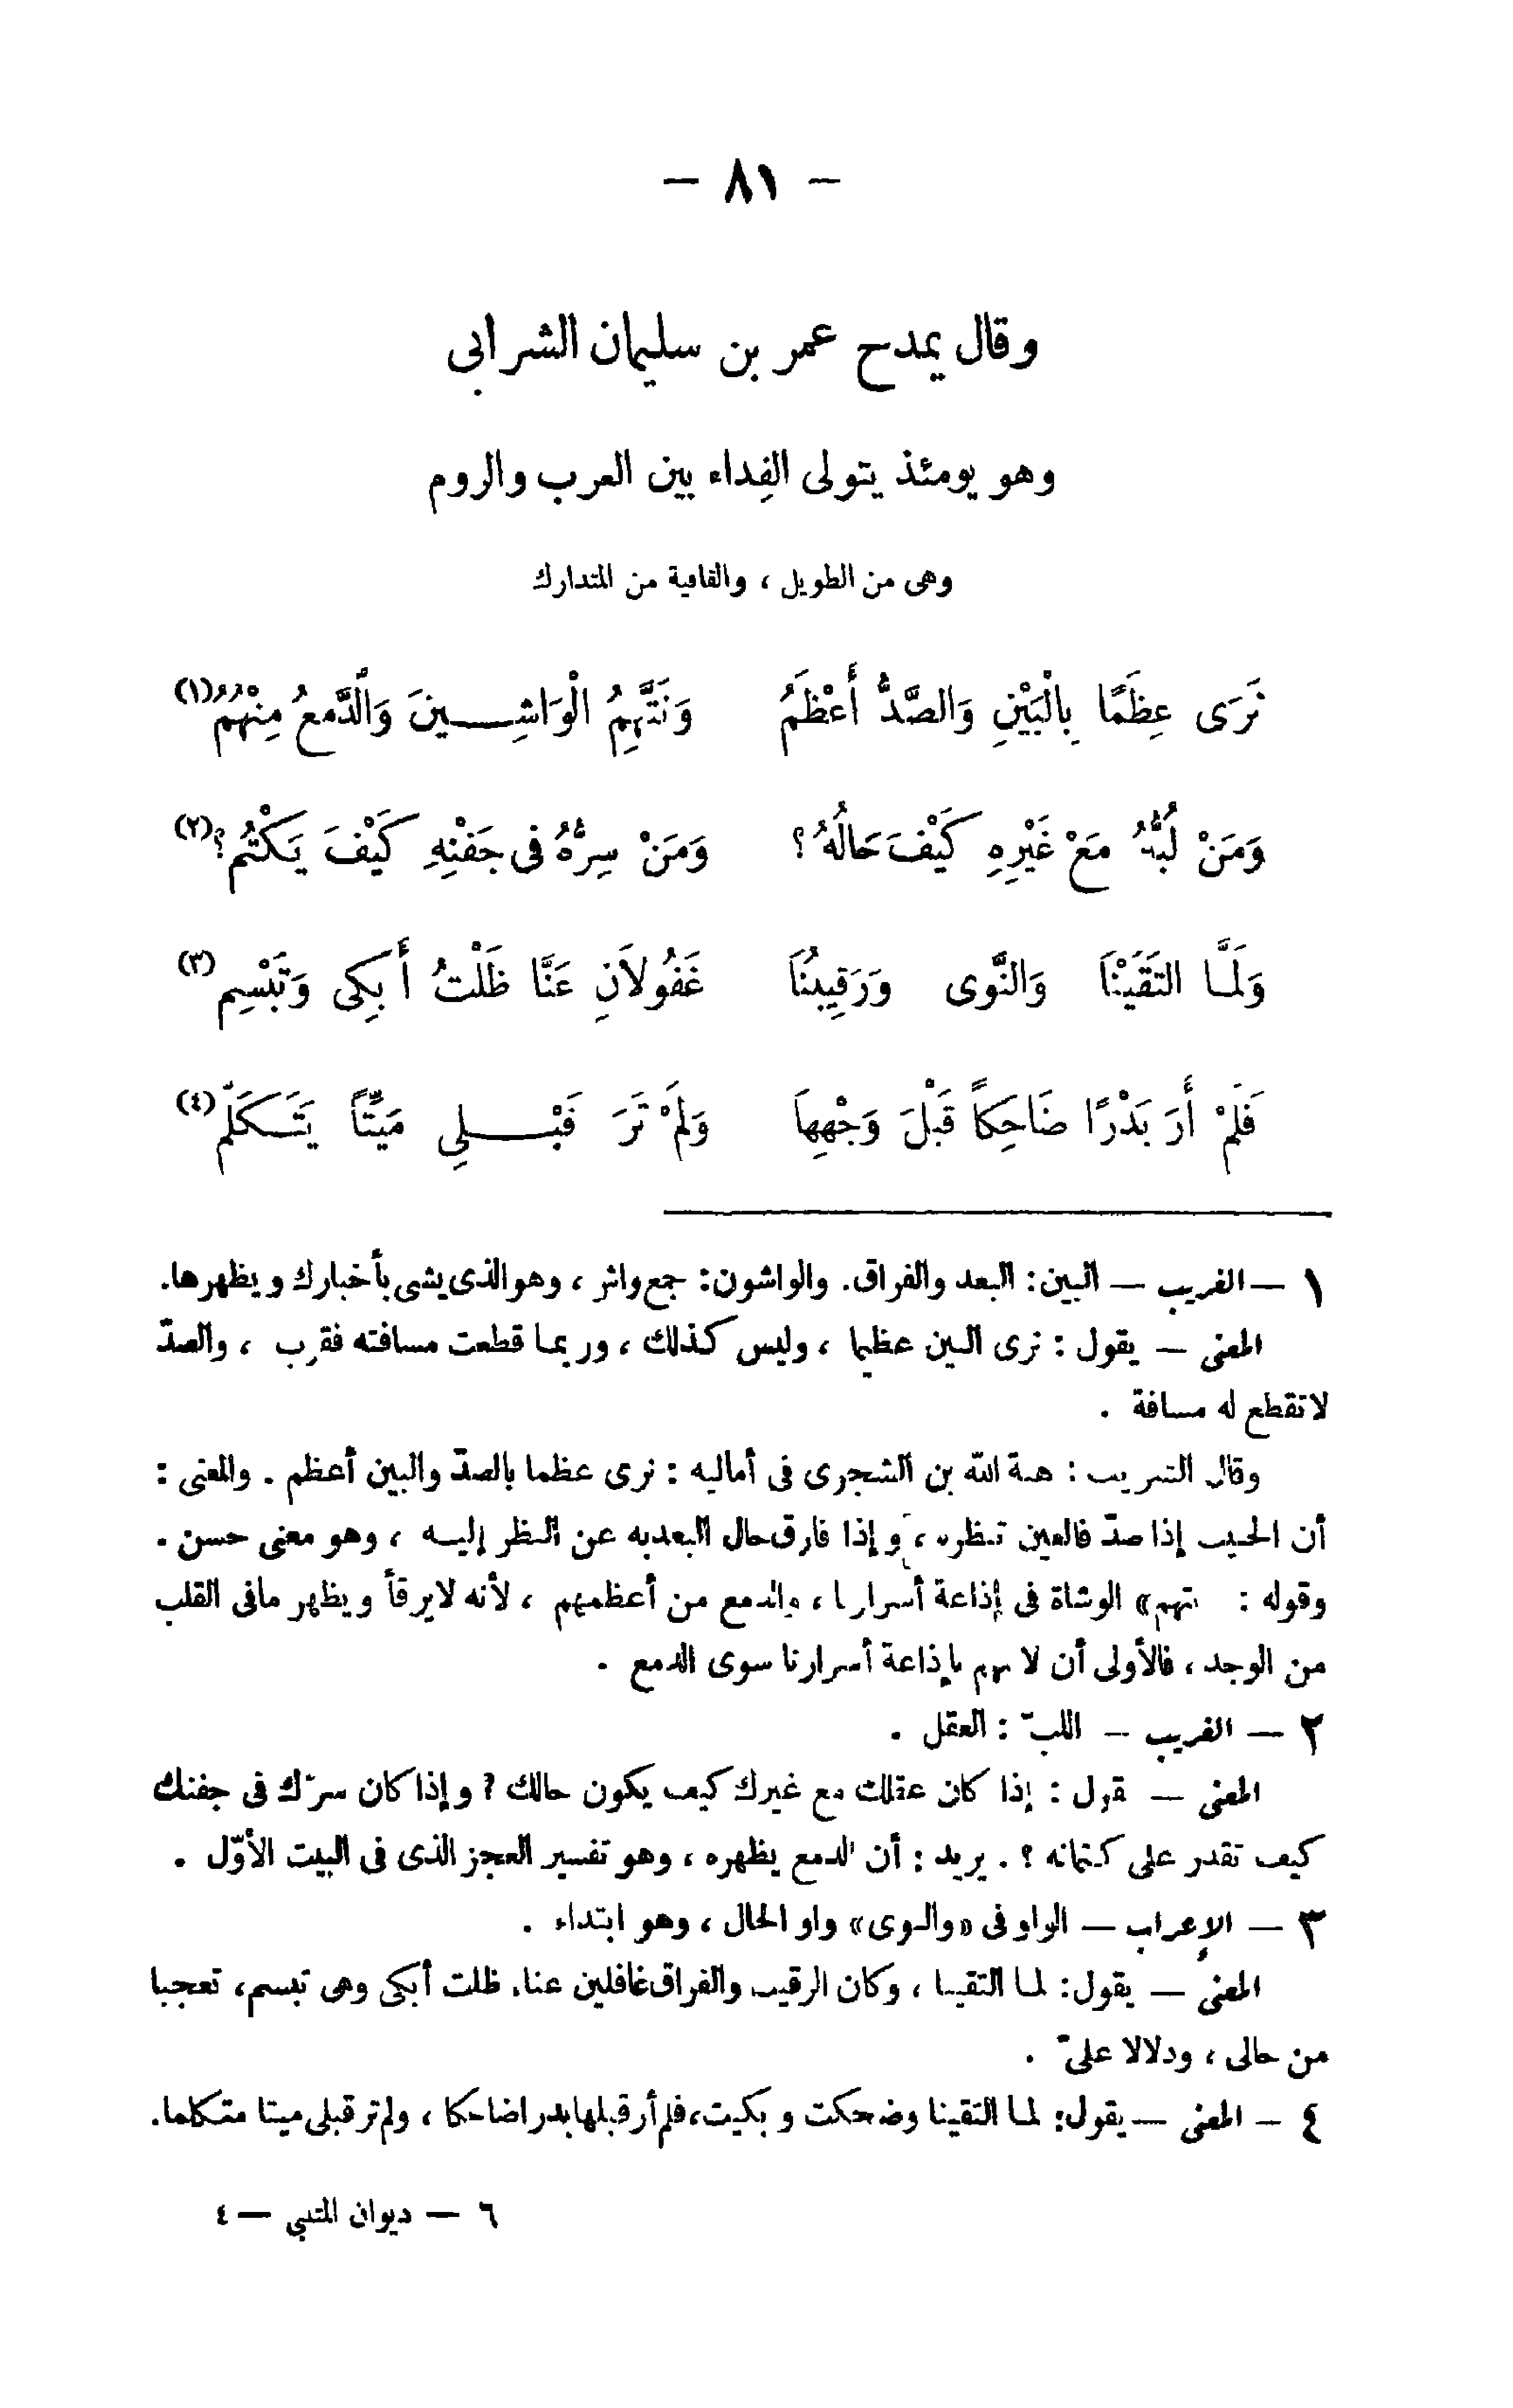 — ٨١ —
وقال يمدح عمر بن سليمان الشرابى
وهو يومئذ يتولى الفِداء بين العرب والروم
وهى من الطويل ، والقافية من المتدارك
نَرَى عِظَمًا بِالْبَيْنِ وَالصَّدُّ أَعْظَمُ وَنَتَّهِمُ الْوَاشِــينَ وَالْدَّمعُ مِنْهُمُ(١)
وَمَنْ لُبُّهُ مَعْ غَيْرِهِ كَيْفَ حَالُهُ ؟ وَمَنْ سِرُّهُ فى جَفْنِهِ كَيْفَ يَكْتُم ؟(٢)
وَلَمَّا التَقَيْنَا وَالنَّوى وَرَقِيبُنَا غَفُولاَنِ عَنَّا ظَلْتُ أَبكِى وَتَبْسِم(٣)
فَلَمْ أَرَ بَدْرًا ضَاحِكاً قَبْلَ وَجْهِهِا وَلَمْ تَرَ قَبْــلِى مَيِّتاً يَتَــكَلَّم(٤)
١ — الغريب — البين : البعد والفراق. والواشون : جمع واش ، وهو الذى يشى بأخبارك ويظهرها.
المعنى — يقول : نرى البين عظيما ، وليس كذلك ، وربما قطعت مسافته فقرب ، والصدّ
لا تقطع له مسافة .
وقال الشريف : هبة الله بن الشجرى فى أماليه : نرى عظما بالصدّ والبين أعظم . والمعنى :
أن الحبيب إذا صدّ فالعين تنظره ، وإذا فارق حال البعد به عن النظر إليه ، وهو معنى حسن .
وقوله : نتهم» الوشاة فى إذاعة أسرارنا ، والدمع من أعظمهم ، لأنه لا يرقأ ويظهر مافى القلب
من الوجد ، فالأولى أن لا نتهم بإذاعة أسرارنا سوى الدمع .
٢ — الغريب — اللبّ : العقل .
المعنى — يقول : إذا كان عقلك مع غيرك كيف يكون حالك ؟ وإذا كان سرّك فى جفنك
كيف تقدر على كتمانه ؟ . يريد : أن الدمع يظهره ، وهو تفسير العجز الذى فى البيت الأوّل .
٣ — الإعراب — الواو فى «والنوى» واو الحال ، وهو ابتداء .
المعنى — يقول : لما التقينا ، وكان الرقيب والفراق غافلين عنا، ظلت أبكى وهى تبسم ، تعجبا
من حالى ، ودلالا علىّ .
٤ — المعنى — يقول : لما التقينا وضحكت وبكيت، فلم أر قبلها بدرا ضاحكا ، ولم تر قبلى ميتا متكلما.
٦ — ديوان المتنبي — ٤